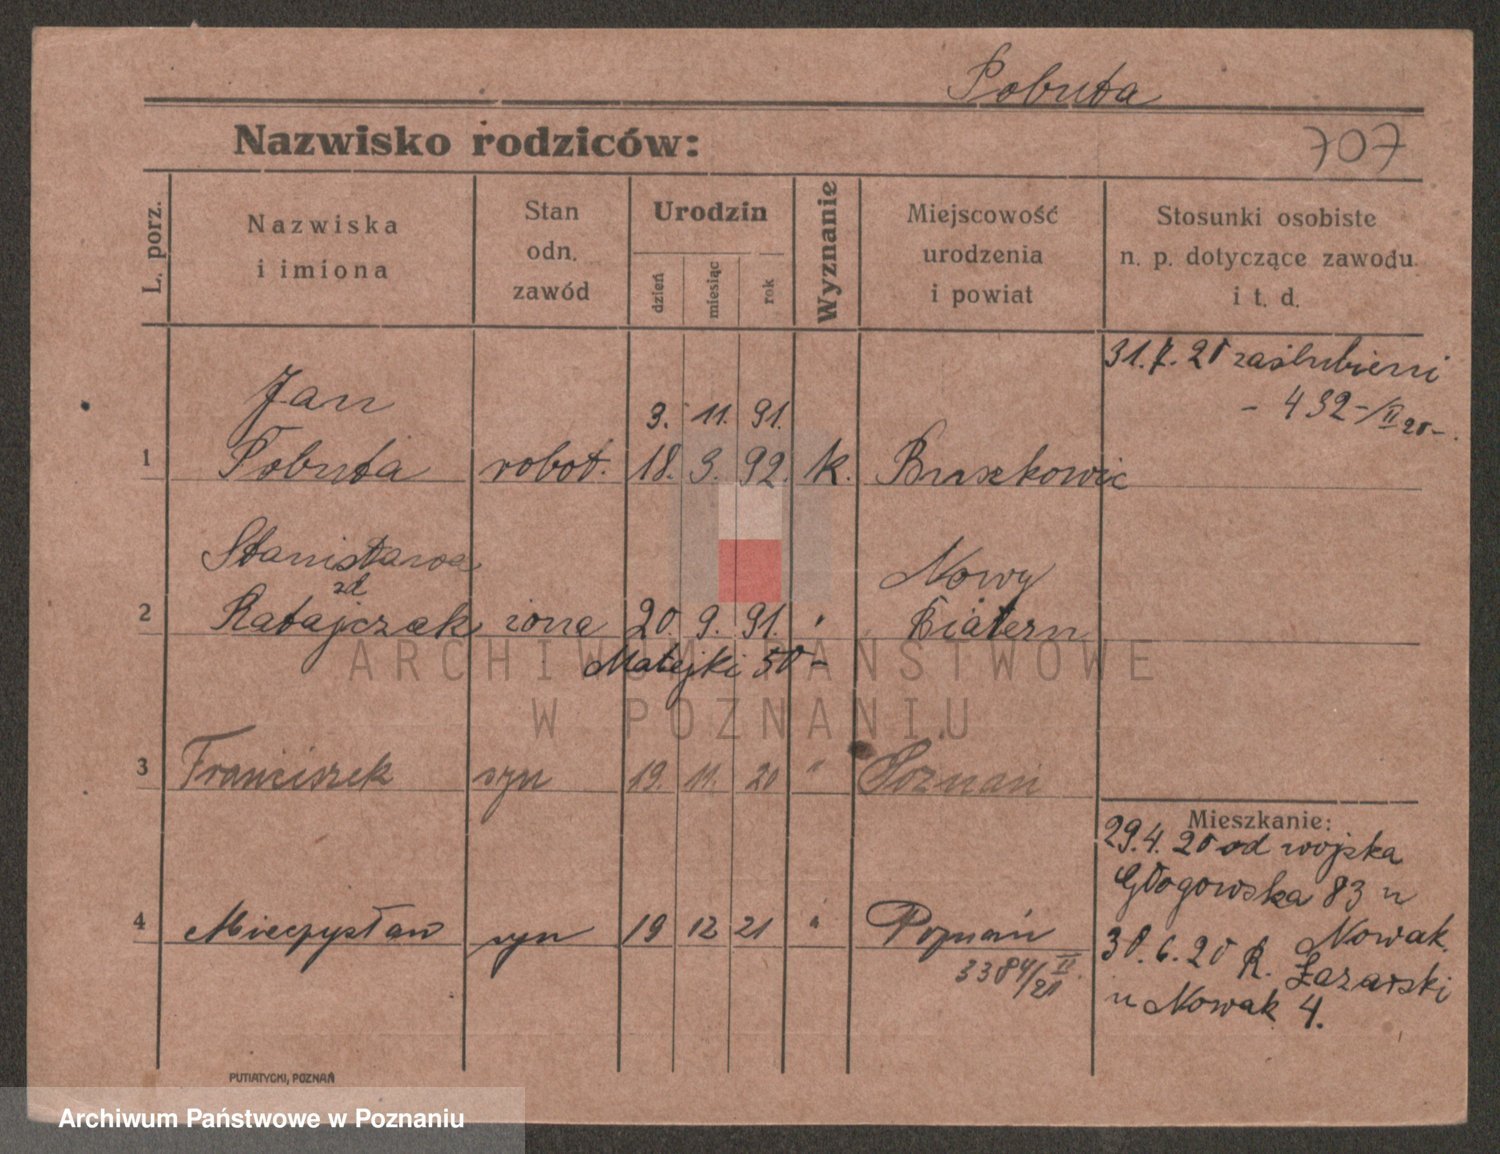 Pobuta
Nazwisko rodziców:
707
L. porz.
Nazwiska
i imiona
Stan
odn.
zawód
Urodzin
dzień
miesiąc
rok
Wyznanie
Miejscowość
urodzenia
i powiat
Stosunki osobiste
n. p. dotyczące zawodu
i t. d.
31.7.20 zaślubieni
- 432-/II 20-.
Jan
3. 11. 91.
1 Pobuta robot. 18. 3. 92. k. Buszkowic
Stanisława
zd
Nowy
2 Ratajczak żona 20. 9. 91. "
Matejki 50-
3 Franciszek syn 19. 11. 20 " Poznań
Mieszkanie:
29.4.20 od wojska
Głogowska 83 u
Nowak.
4 Mieczysław syn 19 12 21 " Poznań
3384/II 21
30.6.20 R. Łazarski
u Nowak 4.
PUTIATYCKI, POZNAŃ
ARCHIWUM PAŃSTWOWE
W POZNANIU
Archiwum Państwowe w Poznaniu